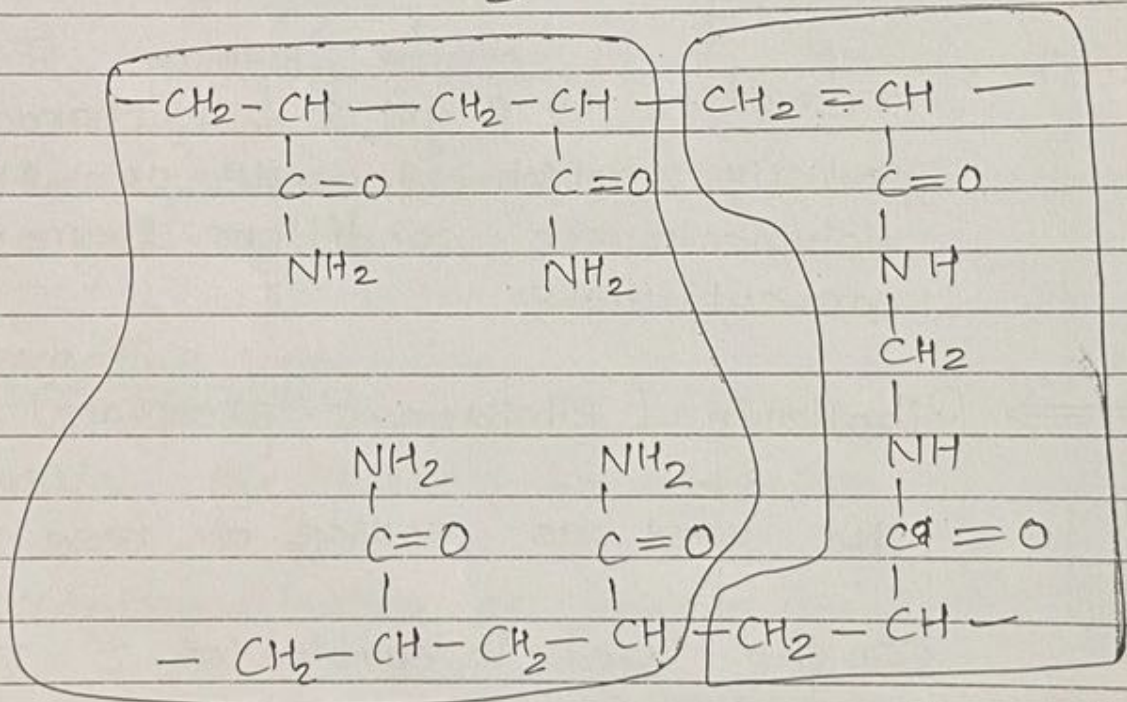 —CH₂—CH—CH₂—CH—CH₂=CH—
C=O C=O C=O
NH₂ NH₂ NH
CH₂
NH₂ NH₂ NH
C=O C=O C=O
—CH₂—CH—CH₂—CH—CH₂—CH—